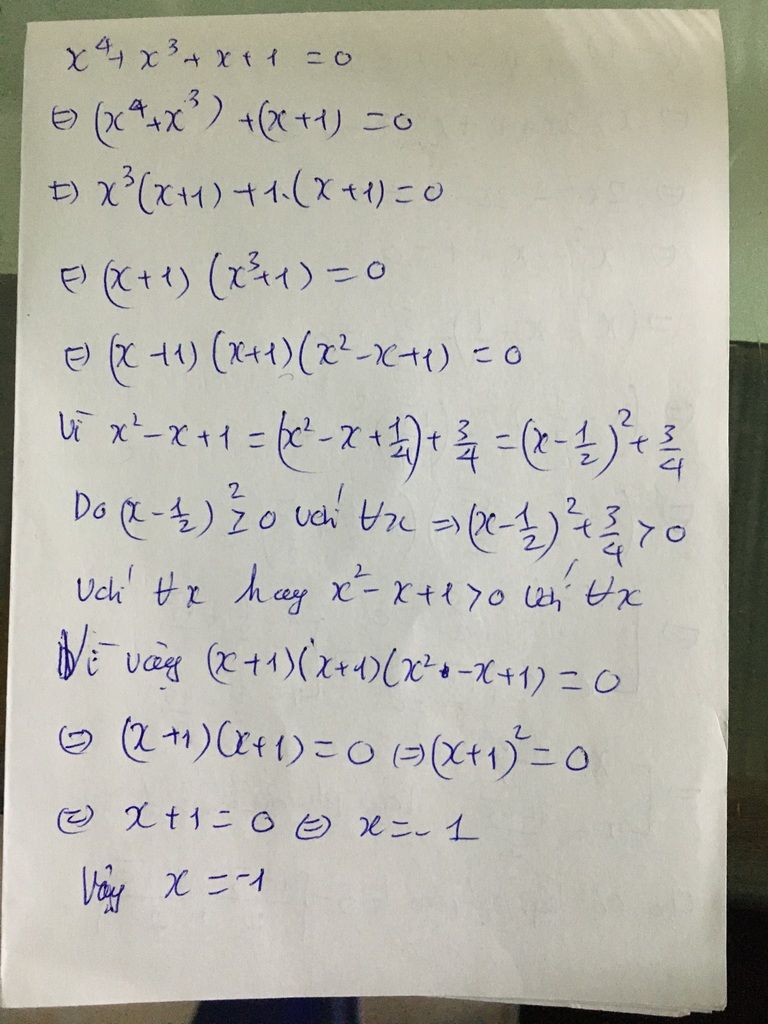 x⁴ + x³ + x + 1 = 0
⇔ (x⁴ + x³) + (x + 1) = 0
⇔ x³(x+1) + 1.(x+1) = 0
⇔ (x+1)(x³+1) = 0
⇔ (x+1)(x+1)(x²-x+1) = 0
Vì x²-x+1 = (x²-x+1/4)+3/4 = (x-1/2)²+3/4
Do (x-1/2)² ≥ 0 với ∀x ⇒ (x-1/2)²+3/4 > 0
với ∀x hay x²-x+1 > 0 với ∀x
Vì vậy (x+1)(x+1)(x²-x+1) = 0
⇔ (x+1)(x+1) = 0 ⇔ (x+1)² = 0
⇔ x+1 = 0 ⇔ x = -1
Vậy x = -1